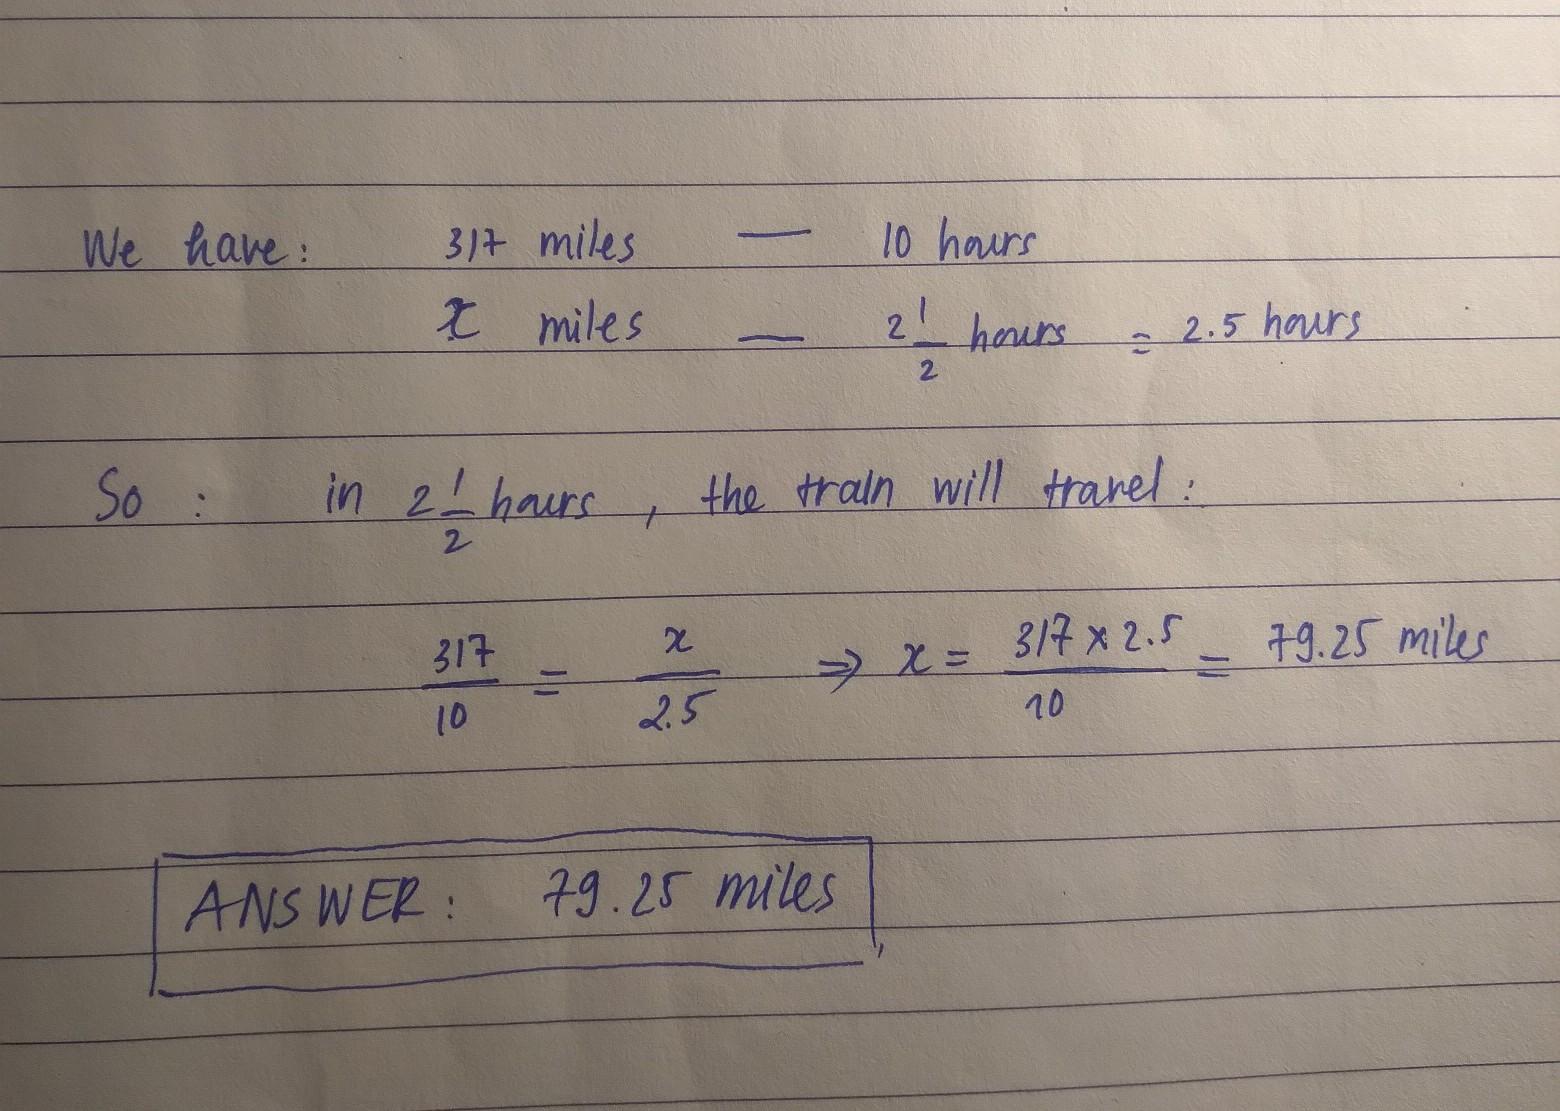 We have: 317 miles — 10 hours
x miles — 2 1/2 hours = 2.5 hours
So : in 2 1/2 hours , the train will travel :
317/10 = x/2.5 ⇒ x = 317 x 2.5/10 = 79.25 miles
ANSWER : 79.25 miles